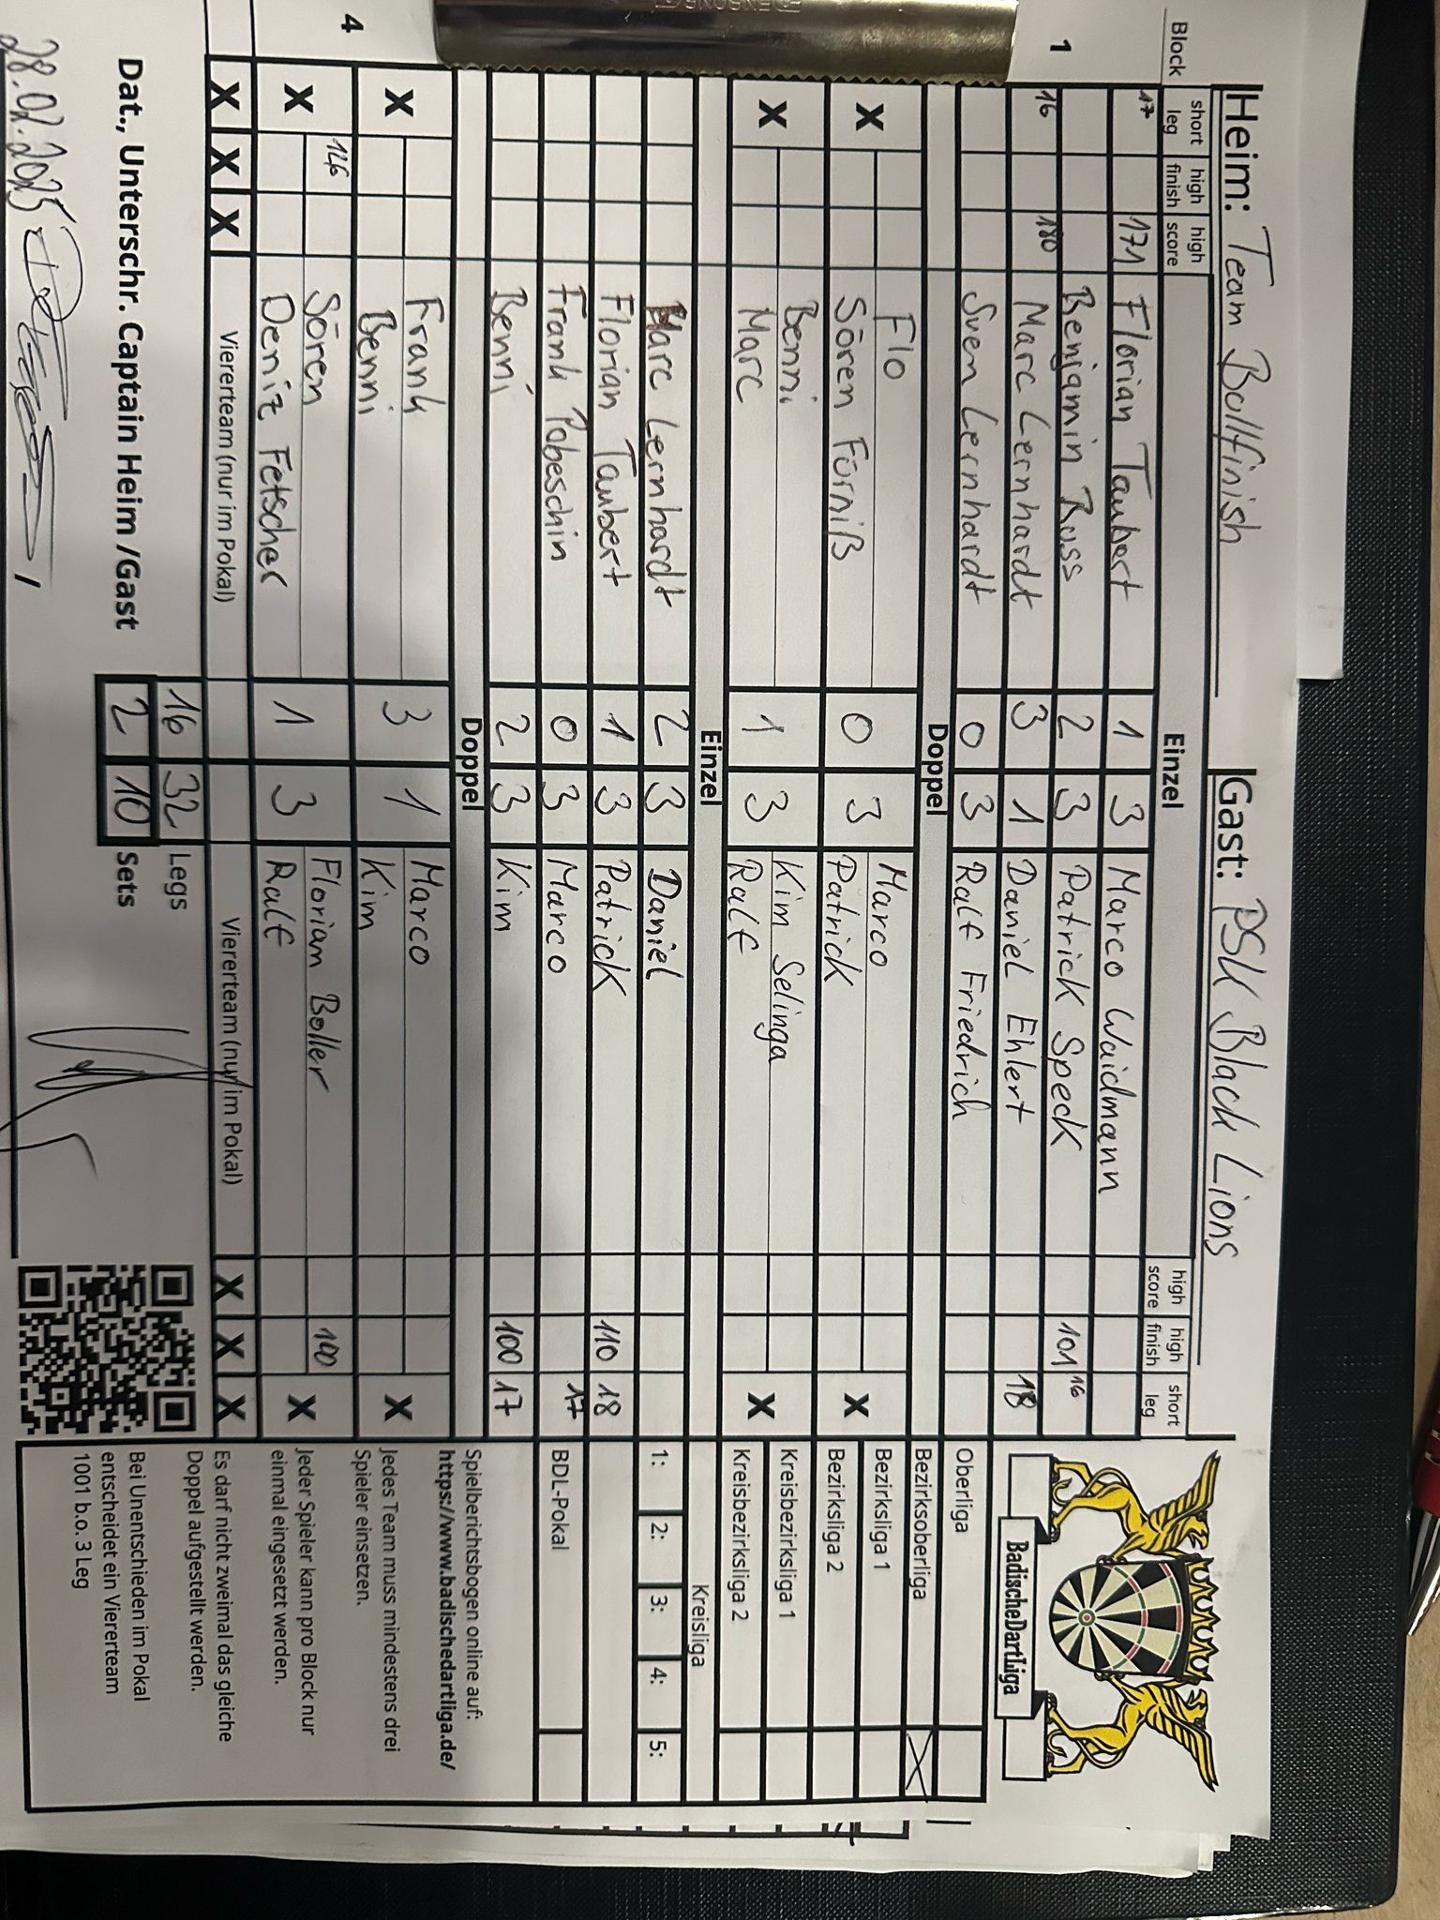 Heim: Team Bullfinish Gast: PSK Black Lions
Block short leg high finish high score Einzel high score high finish short leg
1
17 171 Florian Taubert 1 3 Marco Waidmann
Benjamin Russ 2 3 Patrick Speck 101 16
16 180 Marc Lernhardt 3 1 Daniel Ehlert 18
Sven Lernhardt 0 3 Ralf Friedrich
Doppel
Flo Marco
X Sören Fürniß 0 3 Patrick X
Benni Kim Selinga
X Marc 1 3 Ralf X
Einzel
Marc Lernhardt 2 3 Daniel
Florian Taubert 1 3 Patrick 110 18
Frank Pabeschin 0 3 Marco 17
Benni 2 3 Kim 100 17
Doppel
4
Frank Marco
X Benni 3 1 Kim X
126 Sören Florian Boller 100
X Deniz Fetscher 1 3 Ralf X
X X X Viererteam (nur im Pokal) Viererteam (nur im Pokal) X X X
16 32 Legs
Dat., Unterschr. Captain Heim /Gast 2 10 Sets
28.02.2025
BadischeDartLiga
Oberliga
Bezirksoberliga X
Bezirksliga 1
Bezirksliga 2
Kreisbezirksliga 1
Kreisbezirksliga 2
Kreisliga
1: 2: 3: 4: 5:
BDL-Pokal
Spielberichtsbogen online auf:
https://www.badischedartliga.de/
Jedes Team muss mindestens drei
Spieler einsetzen.
Jeder Spieler kann pro Block nur
einmal eingesetzt werden.
Es darf nicht zweimal das gleiche
Doppel aufgestellt werden.
Bei Unentschieden im Pokal
entscheidet ein Viererteam
1001 b.o. 3 Leg